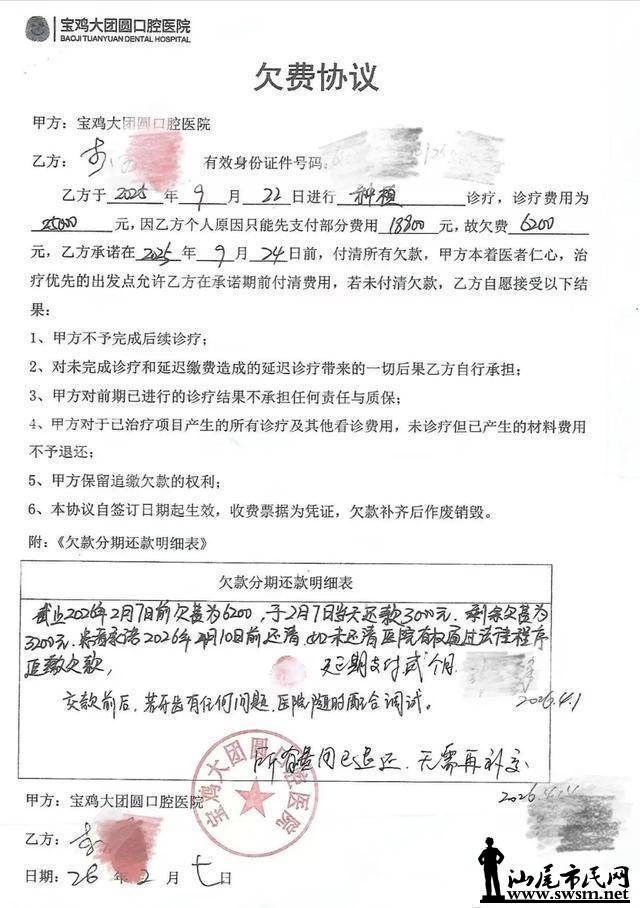 宝鸡大团圆口腔医院
BAOJI TUANYUAN DENTAL HOSPITAL
欠费协议
甲方：宝鸡大团圆口腔医院
乙方： 有效身份证件号码：
乙方于 2025 年 9 月 22 日进行 种植 诊疗，诊疗费用为
25000 元，因乙方个人原因只能先支付部分费用 18800 元，故欠费 6200
元，乙方承诺在 2025 年 9 月 24 日前，付清所有欠款，甲方本着医者仁心，治
疗优先的出发点允许乙方在承诺期前付清费用，若未付清欠款，乙方自愿接受以下结
果：
1、甲方不予完成后续诊疗；
2、对未完成诊疗和延迟缴费造成的延迟诊疗带来的一切后果乙方自行承担；
3、甲方对前期已进行的诊疗结果不承担任何责任与质保；
4、甲方对于已治疗项目产生的所有诊疗及其他看诊费用，未诊疗但已产生的材料费用
不予退还；
5、甲方保留追缴欠款的权利；
6、本协议自签订日期起生效，收费票据为凭证，欠款补齐后作废销毁。
附：《欠款分期还款明细表》
欠款分期还款明细表
截止2026年2月7日前欠费为6200，于2月7日当天还款3000元，剩余欠费为
3200元，承诺2026年 月10日前还清，如未还清医院有权通过法律程序
追缴欠款，
延期支付贰个月
2026.4.1
交款前后，若牙齿有任何问题，医院随时配合调试。
所有费用已退还，无需再补交
2026.4.
甲方：宝鸡大团圆口腔医院
宝鸡大团圆口腔医院
乙方：
日期：26 年 2 月 七 日
汕尾市民网
www.swsm.net